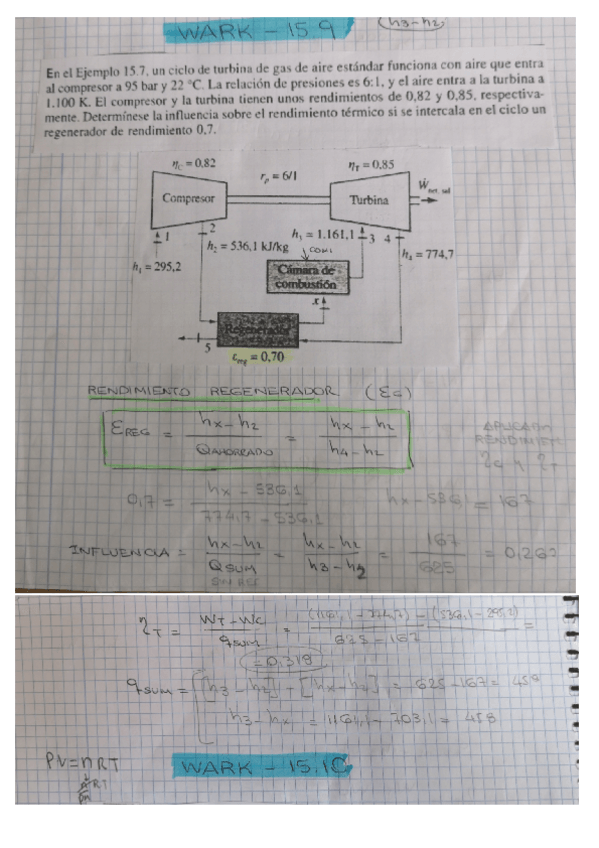 (h3-h2)
WARK - 15.9
En el Ejemplo 15.7, un ciclo de turbina de gas de aire estándar funciona con aire que entra
al compresor a 95 bar y 22 °C. La relación de presiones es 6:1, y el aire entra a la turbina a
1.100 K. El compresor y la turbina tienen unos rendimientos de 0,82 y 0,85, respectiva-
mente. Determínese la influencia sobre el rendimiento térmico si se intercala en el ciclo un
regenerador de rendimiento 0,7.
ηC = 0,82
rp = 6/1
ηT = 0,85
Compresor
Turbina
Ẇnet, sal
1
2
h2 = 536,1 kJ/kg
h1 = 1.161,1
3
4
h1 = 295,2
h4 = 774,7
Cámara de
combustión
x
Regenerador
5
εreg = 0,70
RENDIMIENTO REGENERADOR
EREG = hx - h2 / QAHORRADO = hx - h2 / h4 - h2
APLICADO
RENDIMIEN
0,7 = hx - 536,1 / 774,7 - 536,1
hx - 536,1 = 167
INFLUENCIA = hx-h2 / QSUM = hx-h2 / h3-h2 = 167 / 625
WT - WC / qSUM = (1161,1 - 774,7) - (536,1 - 295,2) / 625 - 167 =
= 0,319
qSUM = [h3 - h2] - [hx - h2] = 625 - 167 = 458
h3 - hx = 1161,1 - 703,1 = 458
PV=nRT
WARK - 15.10